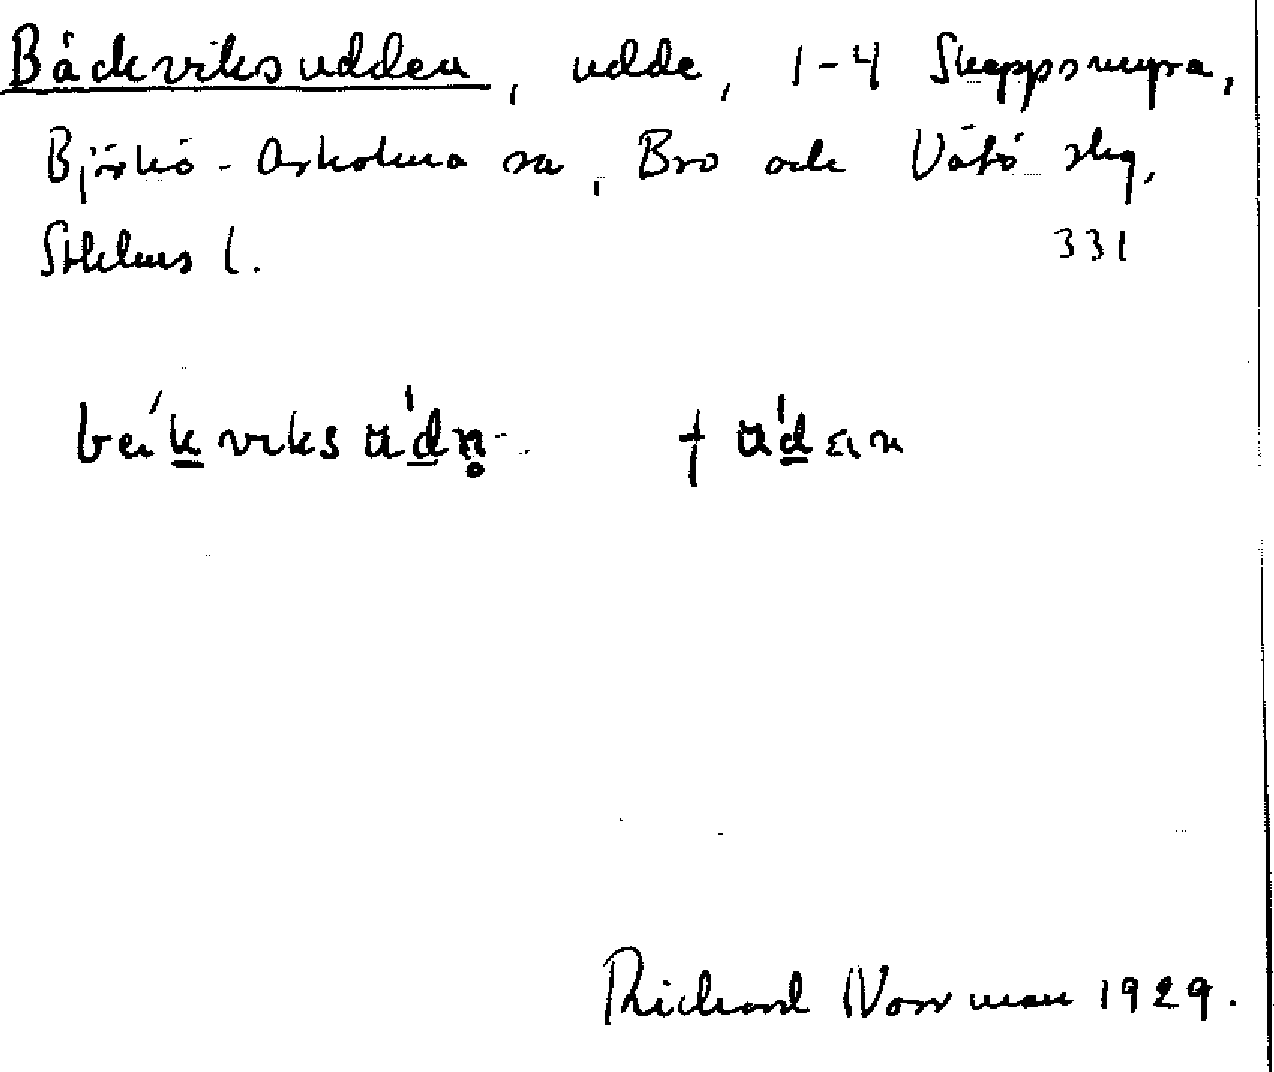 Bäckviksudden, udde, 1-4 Skeppsmyra,
Björkö-Arholma sn, Bro och Vätö skg,
Sthlms l. 331
Richard Norrman 1929.